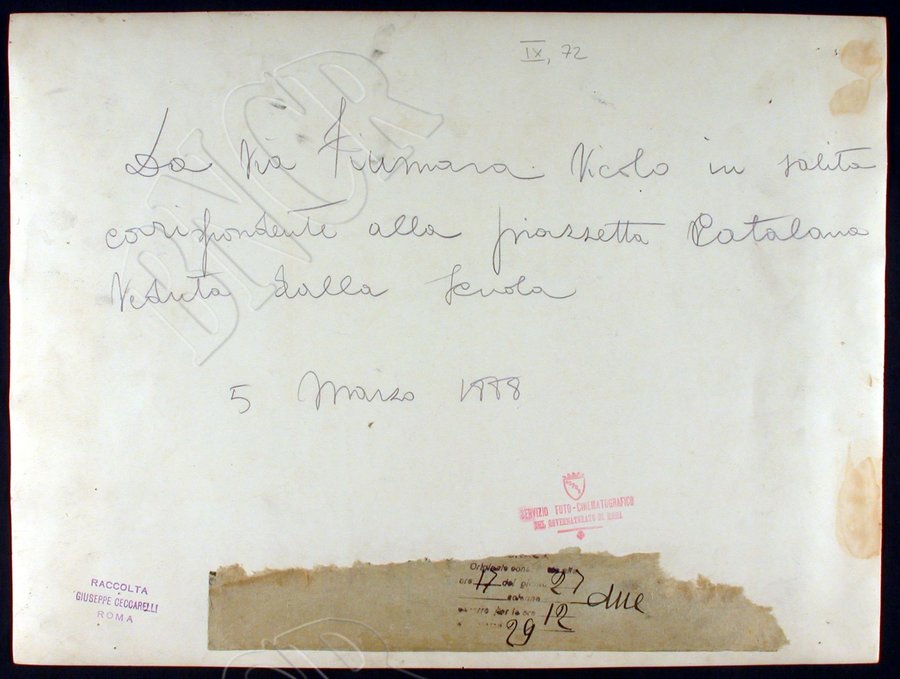 IX, 72
La Via Fiumara Vicolo in salita
corrispondente alla piazzetta Catalana
Veduta dalla Scuola
5 Marzo 1888
SERVIZIO FOTO-CINEMATOGRAFICO
DEL GOVERNATORATO DI ROMA
RACCOLTA
GIUSEPPE CECCARELLI
ROMA
ore 17 del 27
due
per le ore 12
29
BNCR